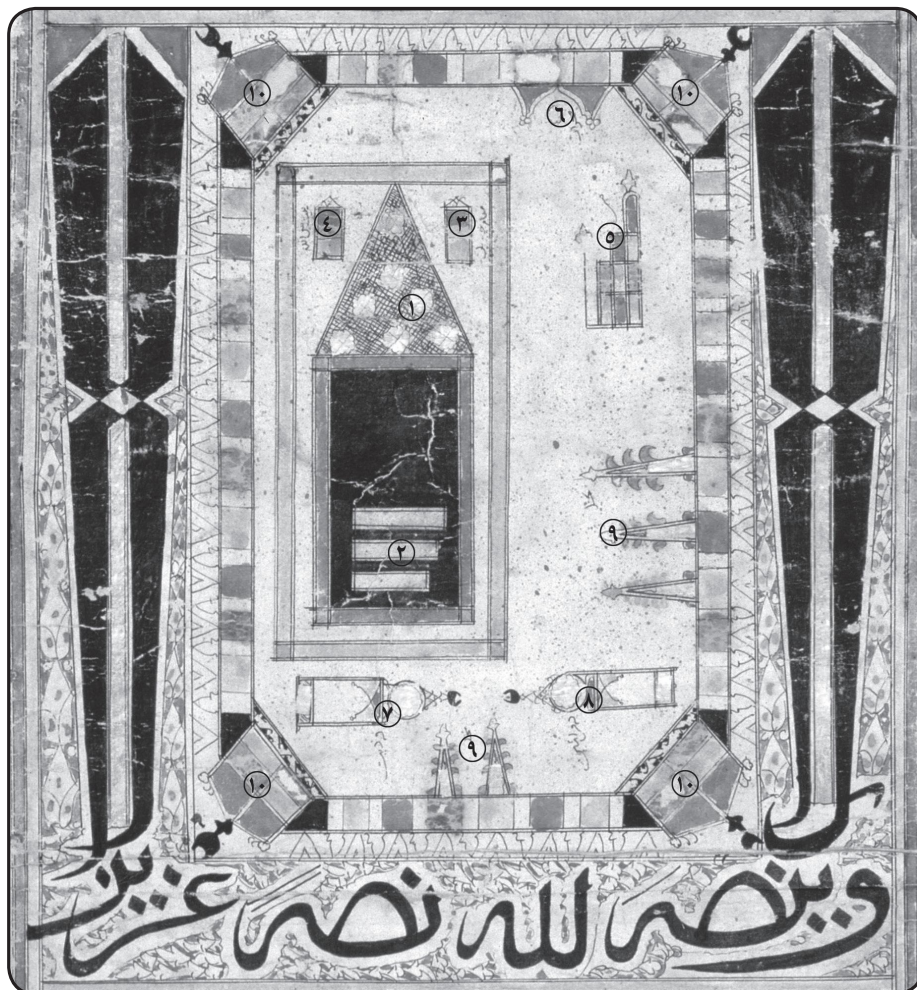 ١٠ ١٠
٦
٣ ٤
٥
١
٩
٢
٨ ٧
٩
١٠ ١٠
وينصرك الله نصرا عزيزا